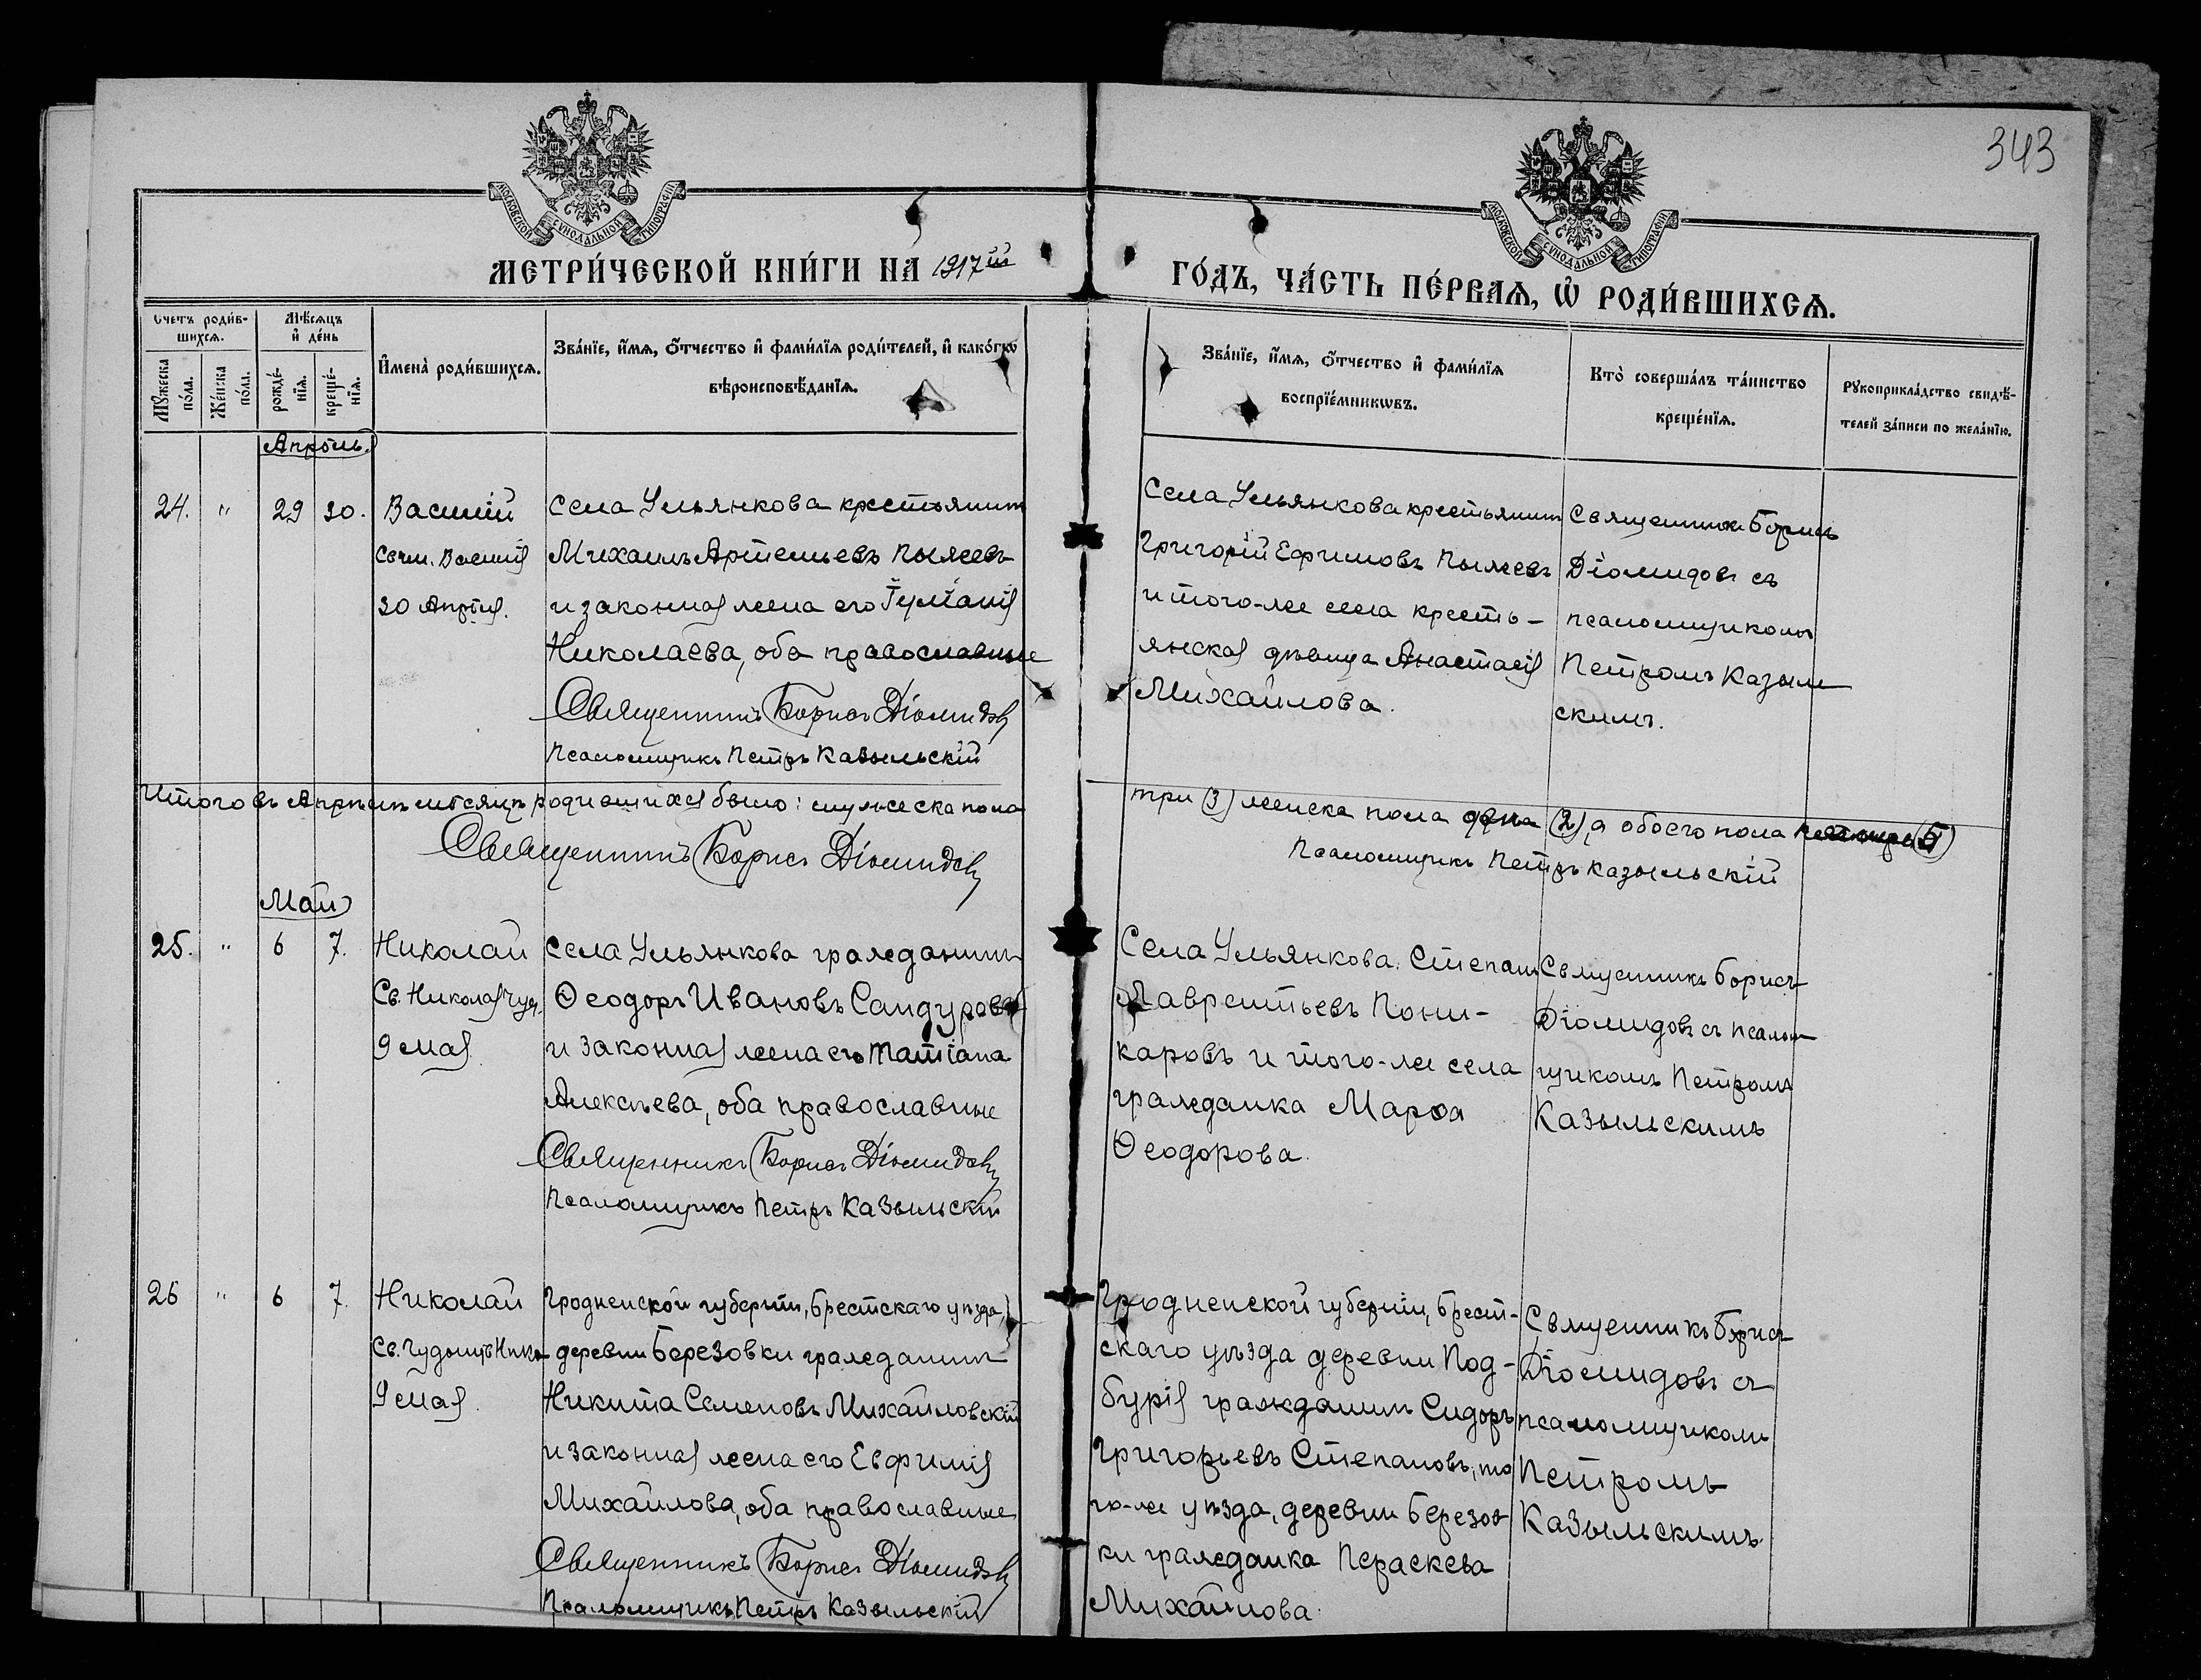 343
МОСКОВСКОЙ СѴНОДАЛЬНОЙ ТИПОГРАФІИ
МОСКОВСКОЙ СѴНОДАЛЬНОЙ ТИПОГРАФІИ
МЕТРИ́ЧЕСКОЙ КНИ́ГИ НА 1917й
ГО́ДЪ, ЧА́СТЬ ПЕ́РВАѦ, Ѡ҆ РОДИ́ВШИХСѦ.
Счетъ роди́в-
шихсѧ.
Мꙋ́жеска по́ла.
Же́нска по́ла.
Мѣ́сѧцъ
и҆ де́нь
рожде́-
нїѧ.
креще́-
нїѧ.
И҆мена̀ роди́вшихсѧ.
Зва́нїе, и҆́мѧ, ѻ҆́тчество и҆ фами́лїѧ роди́телей, и҆ како́гѡ
вѣроисповѣ́данїѧ.
Зва́нїе, и҆́мѧ, ѻ҆́тчество и҆ фами́лїѧ
воспрїе́мникѡвъ.
Кто̀ соверша́лъ та́инство
креще́нїѧ.
Рꙋкоприкла́дство свидѣ́-
телей за́писи по жела́нїю.
Апрѣль.
24. " 29 30.
Василій
Свчм. Василія
30 Апрѣля.
Села Ульянкова крестьянинъ
Михаилъ Артемьевъ Пыжевъ
и законная жена его Іуліанія
Николаева, оба православные
Священникъ Борисъ Діомидовъ
Псаломщикъ Петръ Казыльскій
Села Ульянкова крестьянинъ
Григорій Ефимовъ Пыжевъ
и того-же села кресть-
янская дѣвица Анастасія
Михайлова.
Священникъ Борисъ
Діомидовъ съ
псаломщикомъ
Петромъ Казыль-
скимъ.
Итого въ Апрѣлѣ мѣсяцѣ родившихся было: мужеска пола
три (3) женска пола (2), а обоего пола (5)
Священникъ Борисъ Діомидовъ
Псаломщикъ Петръ Казыльскій
Май
25. " 6 7.
Николай
Св. Николая Чуд.
9 мая.
Села Ульянкова гражданинъ
Ѳеодоръ Ивановъ Сандуровъ
и законная жена его Татіана
Алексѣева, оба православные
Священникъ Борисъ Діомидовъ
Псаломщикъ Петръ Казыльскій
Села Ульянкова. Степанъ
Лаврентьевъ Пони-
каровъ и того-же села
гражданка Марѳа
Ѳеодорова.
Священникъ Борисъ
Діомидовъ съ псалом-
щикомъ Петромъ
Казыльскимъ
26 " 6 7.
Николай
Св. Чудотв. Нико
9 мая.
Гродненской губерніи, Брестскаго уѣзда,
деревни Березовки гражданинъ
Никита Семеновъ Михайловскій
и законная жена его Евфимія
Михайлова, оба православные
Священникъ Борисъ Діомидовъ
Псаломщикъ Петръ Казыльскій
Гродненской губерніи, Брест-
скаго уѣзда деревни Под-
бурія гражданинъ Сидоръ
Григорьевъ Степановъ, то
го-же уѣзда, деревни Березов
ки гражданка Параскева
Михайлова.
Священникъ Борисъ
Діомидовъ съ
псаломщикомъ
Петромъ
Казыльскимъ.